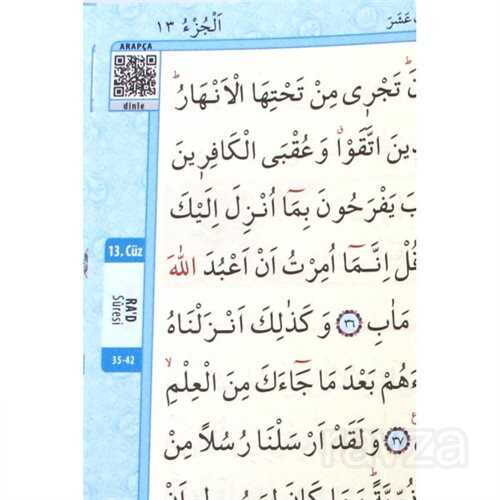 اَلْجُزْءُ ١٣
ARAPÇA
dinle
تَجْرٖى مِنْ تَحْتِهَا الْاَنْهَارُ
اتَّقَوْا وَعُقْبَى الْكَافِرٖينَ
يَفْرَحُونَ بِمَٓا اُنْزِلَ اِلَيْكَ
قُلْ اِنَّمَٓا اُمِرْتُ اَنْ اَعْبُدَ اللّٰهَ
13. Cüz
مَاٰبِ ﴿٣٦﴾ وَكَذٰلِكَ اَنْزَلْنَاهُ
RA'D
Sûresi
35-42
بَعْدَ مَا جَٓاءَكَ مِنَ الْعِلْمِ
﴿٣٧﴾ وَلَقَدْ اَرْسَلْنَا رُسُلًا مِنْ
ravza